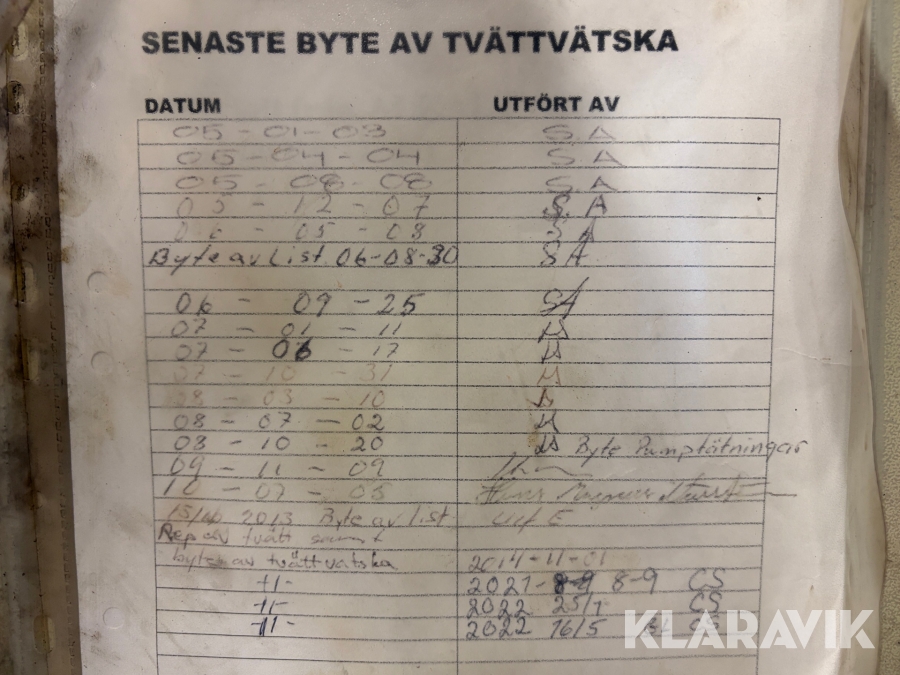 SENASTE BYTE AV TVÄTTVÄTSKA
DATUM UTFÖRT AV
05-01-03 S.A
05-04-04 S.A
05-08-08 S.A
05-12-07 S.A
06-05-08 S A
Byte av List. 06-08-30 SA
06-09-25 SA
07-01-11
07-06-17
07-10-31
08-03-10
08-07-02
08-10-20 Byte Pumptätningar
09-11-09
10-07-05 Hans
2013 Byte av list Ulf E
Rep av tvätt samt
byte av tvättvätska 2014-11-01
-11- 2021- 8-9 CS
-11- 2022 25/1 CS
-11- 2022 16/5 CS
KLARAVIK